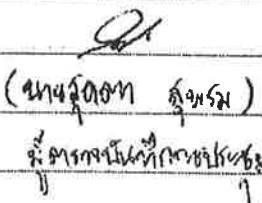 (นายสุดตา สุพรม)
ผู้ตรวจบันทึกการประชุม